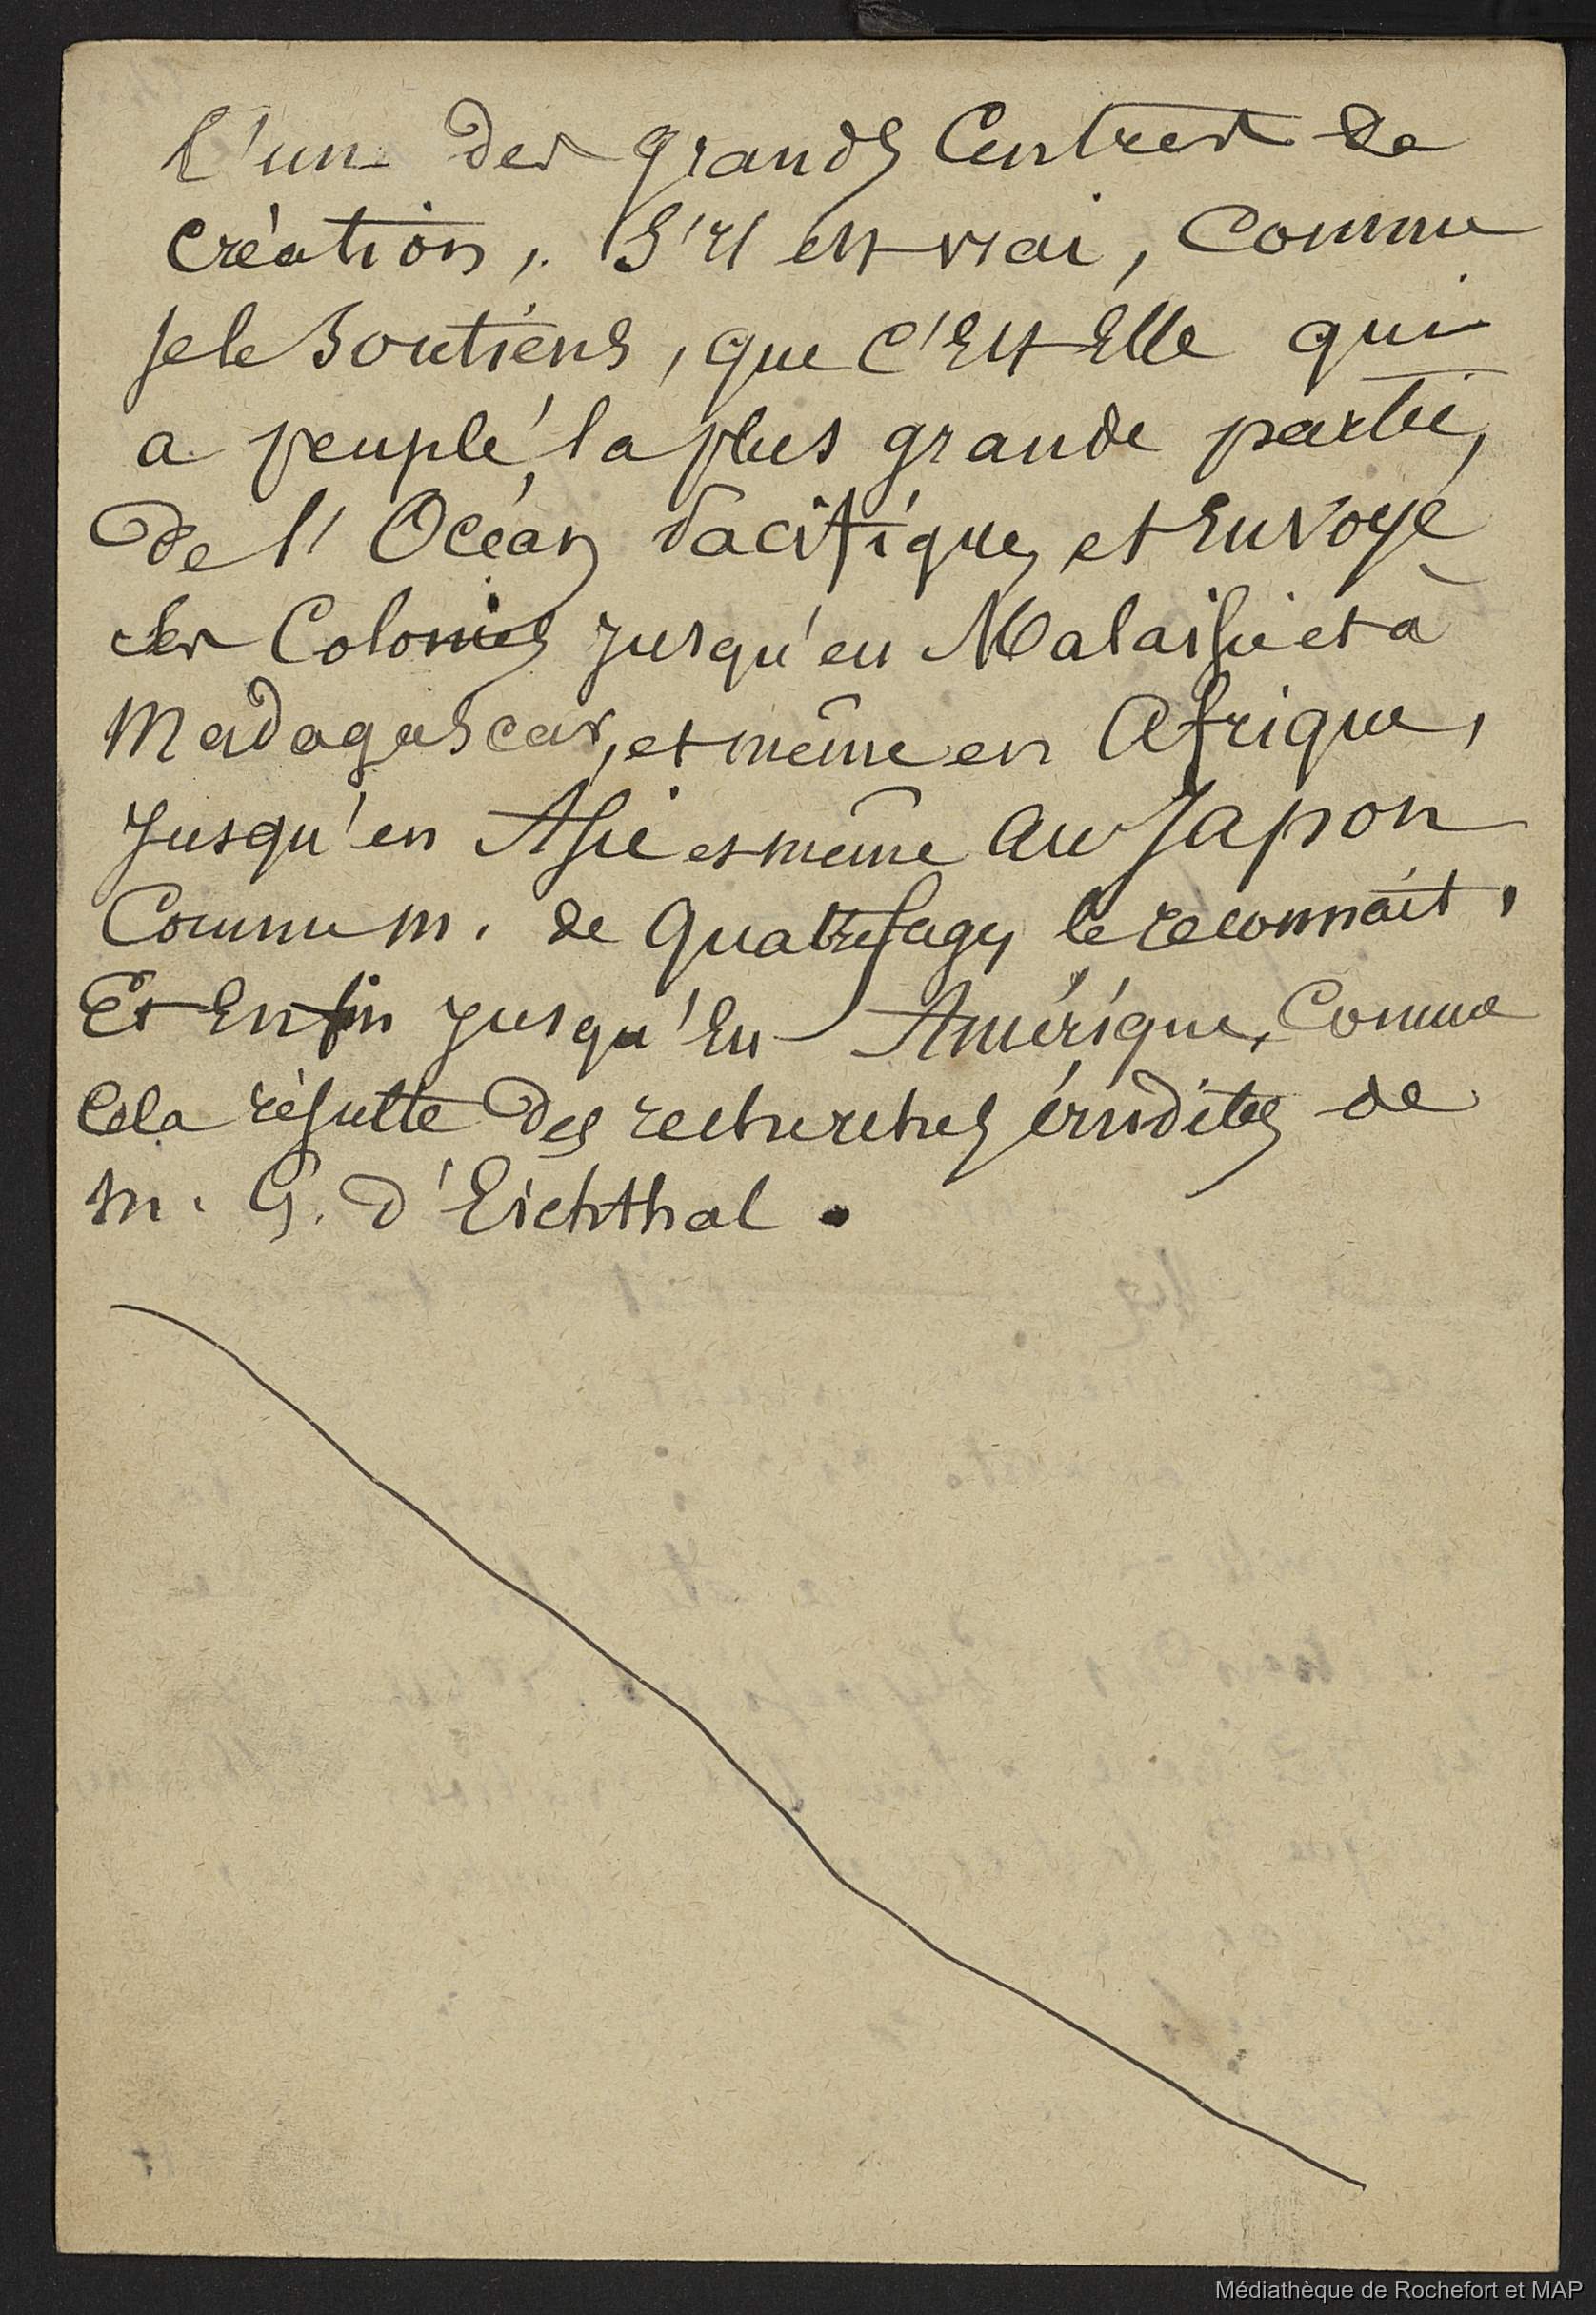 l'un des grands Centres de
création, S'il est vrai, Comme
je le Soutiens, que C'Est Elle qui
a peuplé, la plus grande partie,
de l'Océan Pacifique, et Envoyé
des Colonies jusqu'en Malaisie et à
Madagascar, et même en Afrique,
jusqu'en Asie et même au Japon
Comme M. de Quatrefages le reconnaît,
Et Enfin jusqu'En Amérique, Comme
Cela résulte des recherches érudites de
M. G. d'Eichthal.
Médiathèque de Rochefort et MAP